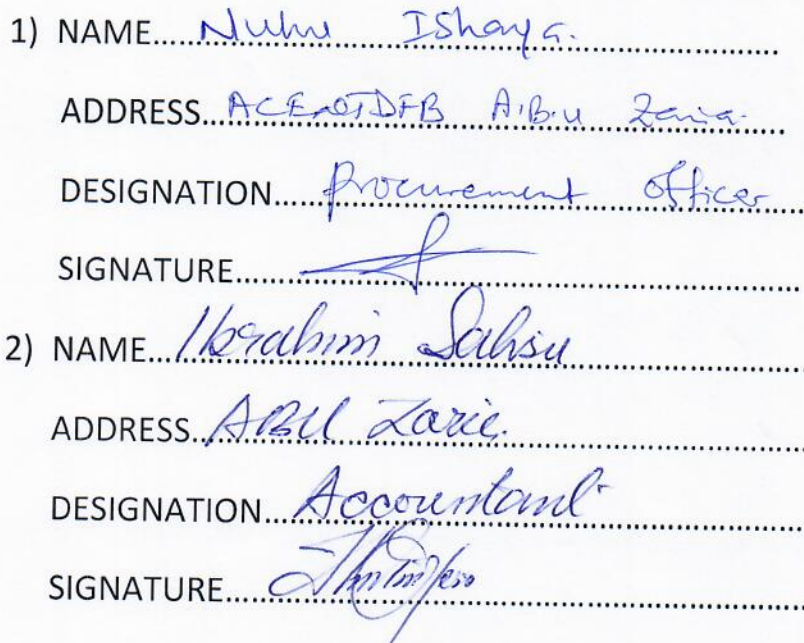 1) NAME.....Nuhu Ishaya.....
ADDRESS...ACENTDFB A.B.U Zaria.....
DESIGNATION.....Procurement Officer
SIGNATURE.....
2) NAME...Ibrahim Salisu.....
ADDRESS...ABU Zaria.....
DESIGNATION...Accountant.....
SIGNATURE.....